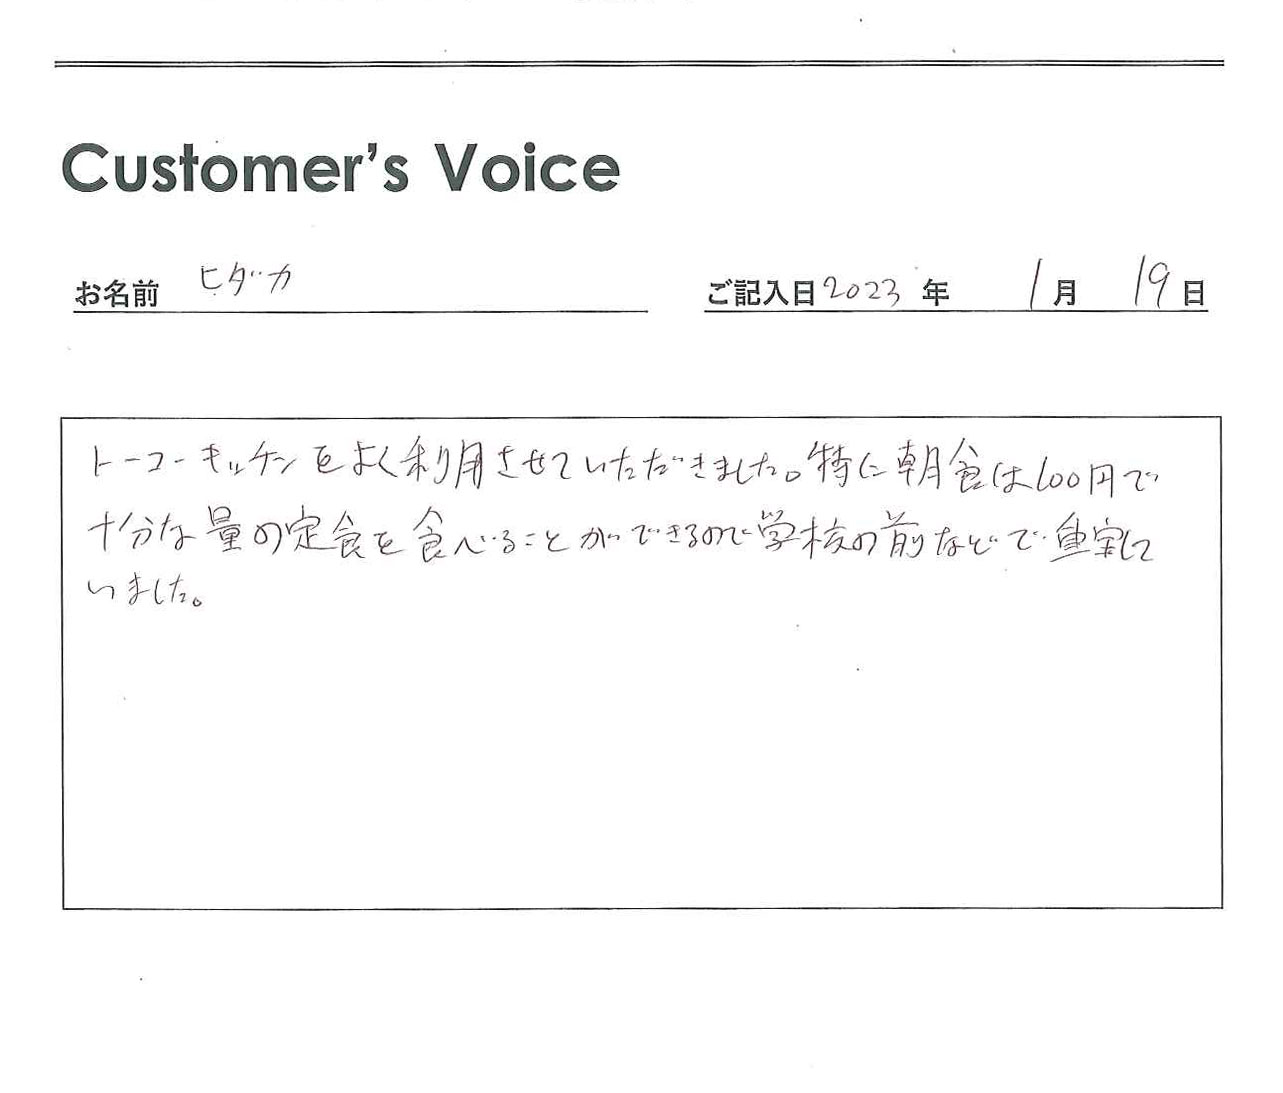 Customer's Voice
お名前 ヒダカ
ご記入日 2023 年 1 月 19 日
トーコーキッチンをよく利用させていただきました。特に朝食は100円で
十分な量の定食を食べることができるので学校の前などで重宝して
いました。